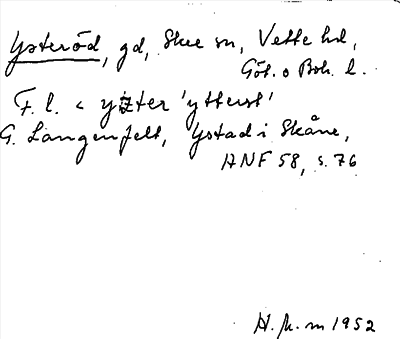 Ysteröd, gd, Skee sn, Vette hd,
Göt. o Boh. l.
F. l. < yzter 'ytterst'
G. Langenfelt, Ystad i Skåne,
ANF 58, s. 76
H. 1952